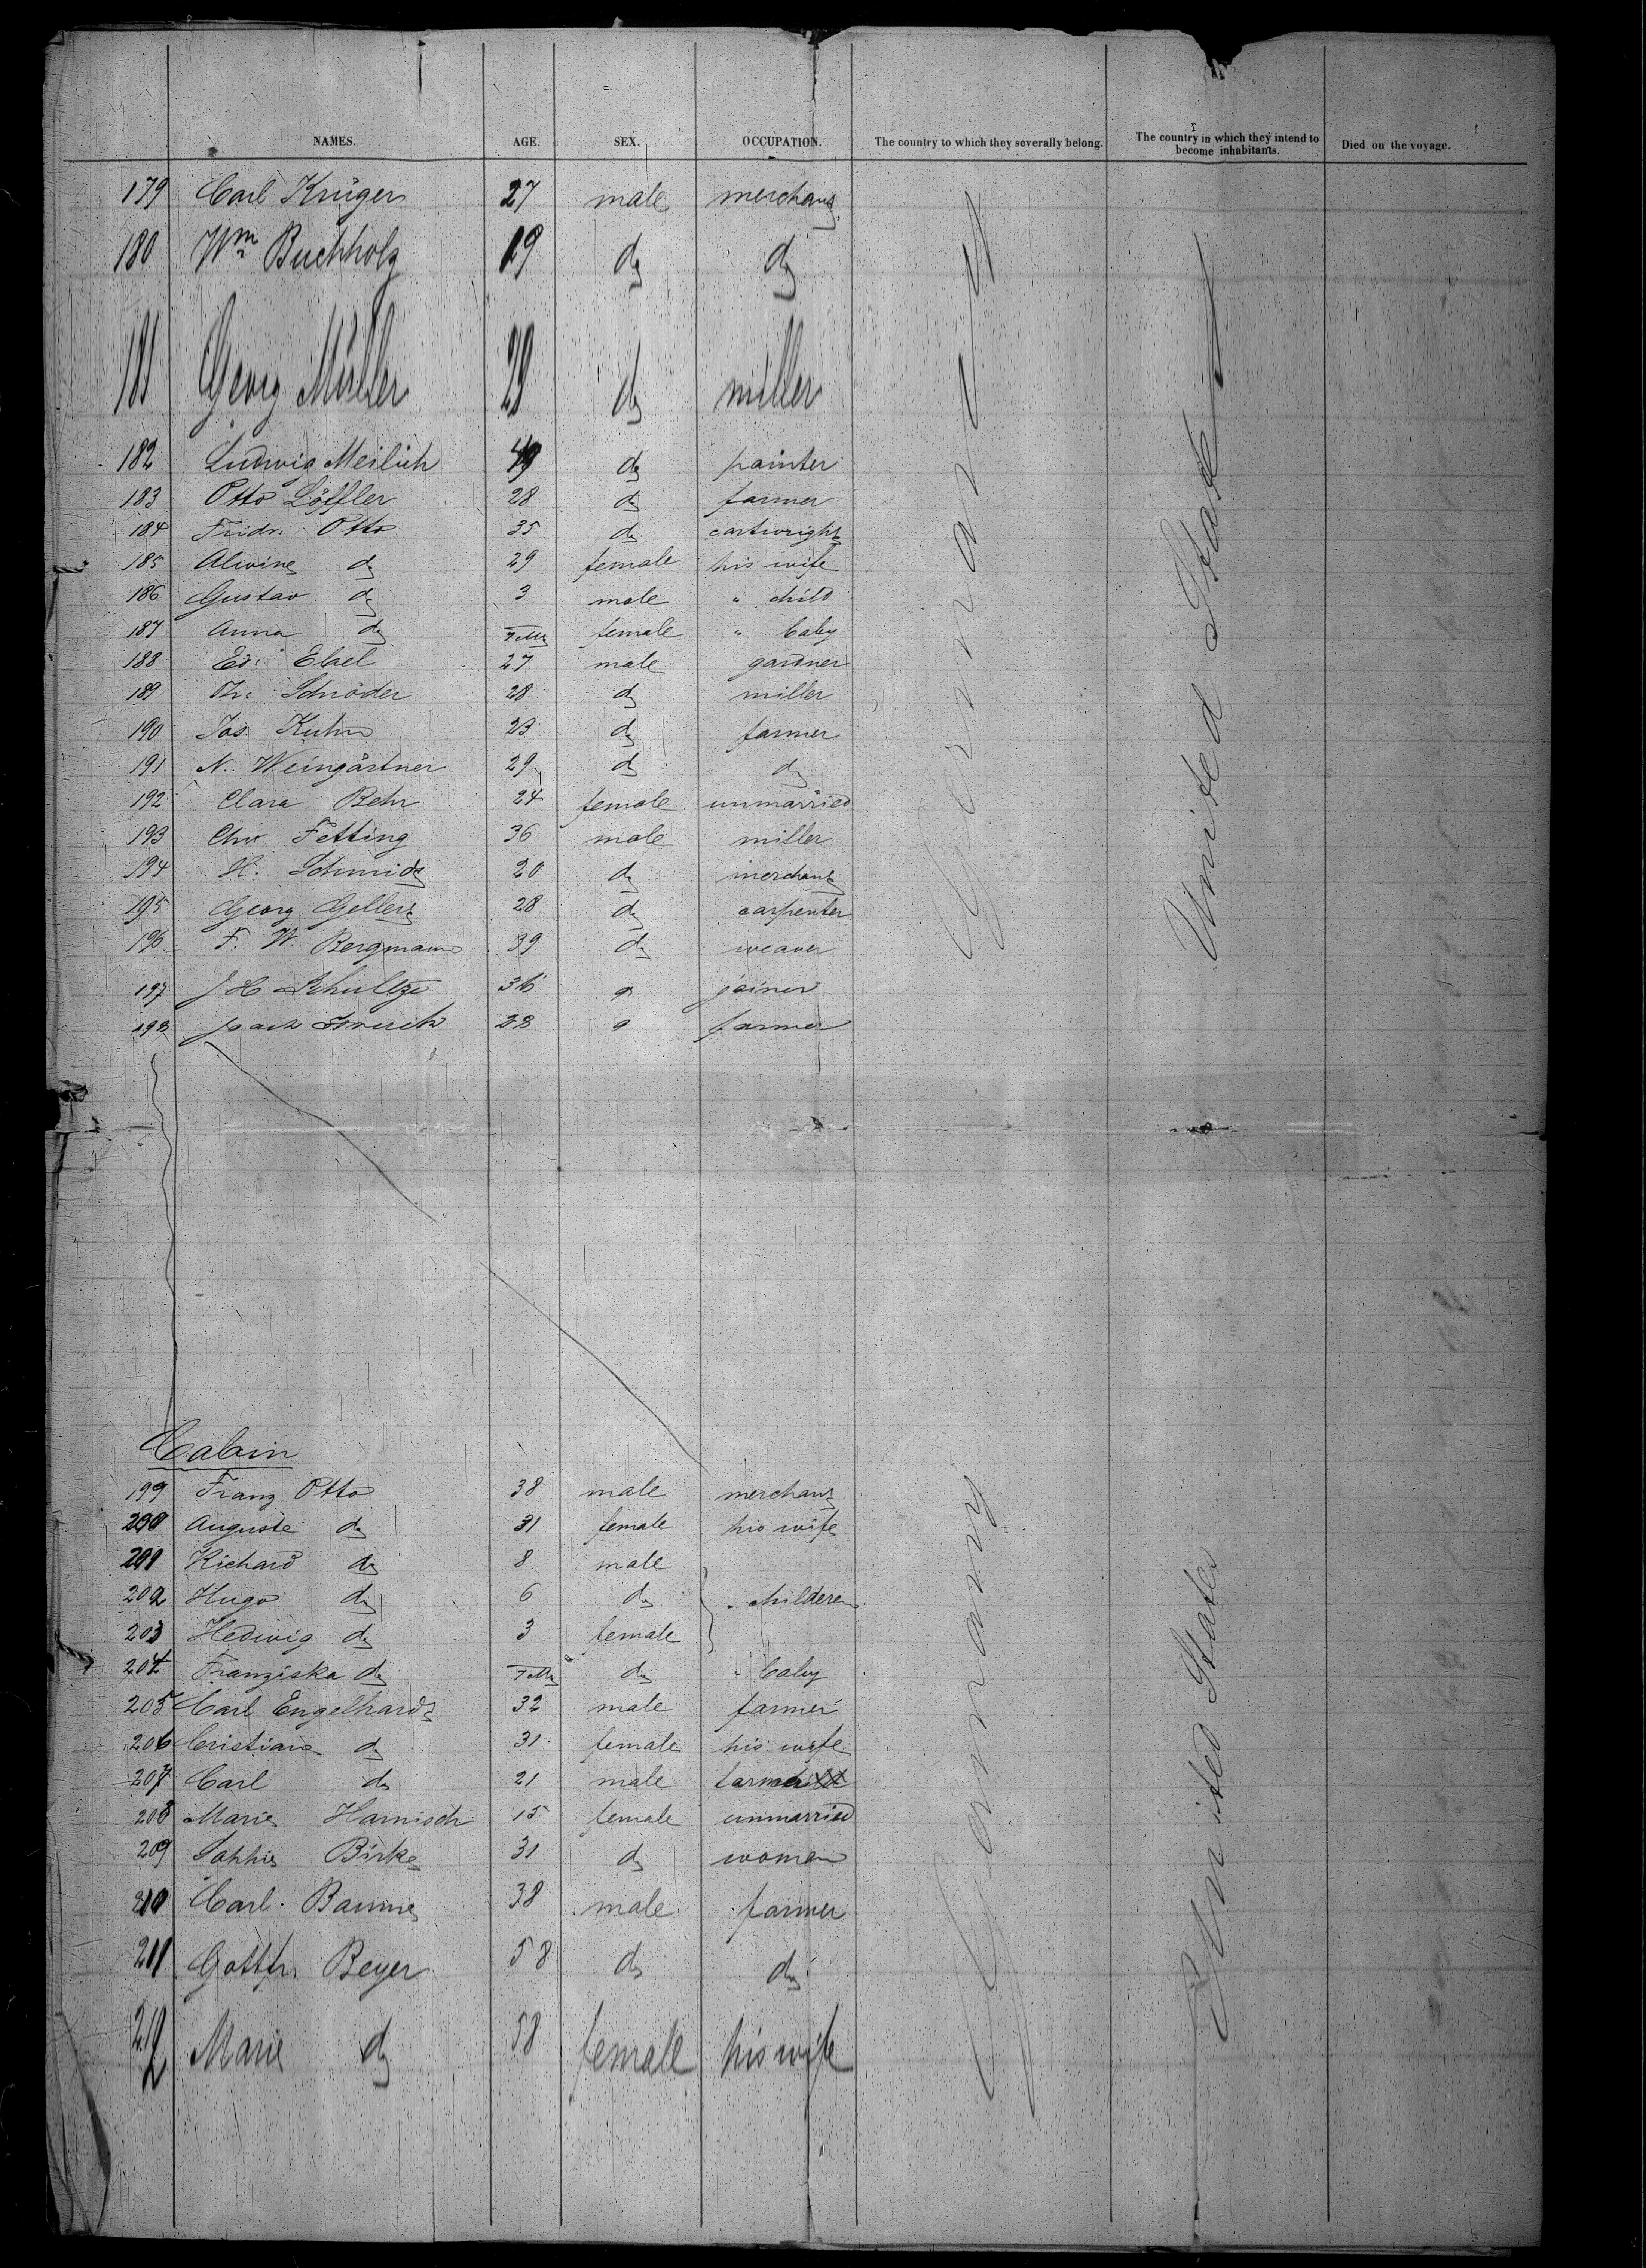 NAMES. AGE. SEX. OCCUPATION. The country to which they severally belong. The country in which they intend to become inhabitants. Died on the voyage.
179 Carl Krüger 27 male merchant
180 Wm Buchholz 19 do do
181 Georg Müller 29 do miller
182 Ludwig Meilich 49 do painter
183 Otto Löffler 28 do farmer
184 Fridr. Otto 35 do cartwright
185 Alwine do 29 female his wife
186 Gustav do 3 male " child
187 Anna do female " baby
188 Ed. Ebel 27 male gardner
189 Th. Schröder 28 do miller
190 Jos. Kuhn 23 do farmer
191 N. Weingärtner 29 do do
192 Clara Behr 24 female unmarried
193 Chr Fetting 36 male miller
194 H. Schmidt 20 do merchant
195 Georg Gellert 28 do carpenter
196 F. W. Bergmann 39 do weaver
197 J H Schultze 36 joiner
198 28 farmer
Germany
United States
Cabin
199 Franz Otto 38 male merchant
200 Auguste do 31 female his wife
201 Richard do 8 male
202 Hugo do 6 do " childeren
203 Hedwig do 3 female
204 Franziska do do " baby
205 Carl Engelhardt 32 male farmer
206 Cristiane do 31 female his wife
207 Carl do 21 male farmer
208 Marie Harnisch 15 female unmarried
209 Sophie Birke 31 do woman
210 Carl Baume 38 male farmer
211 Gottfr. Beyer 58 do do
212 Marie do 58 female his wife
Germany
United States